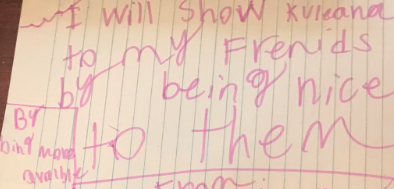 I will show kuleana
to my Frenids
by being nice
to them
By
bing more
From: